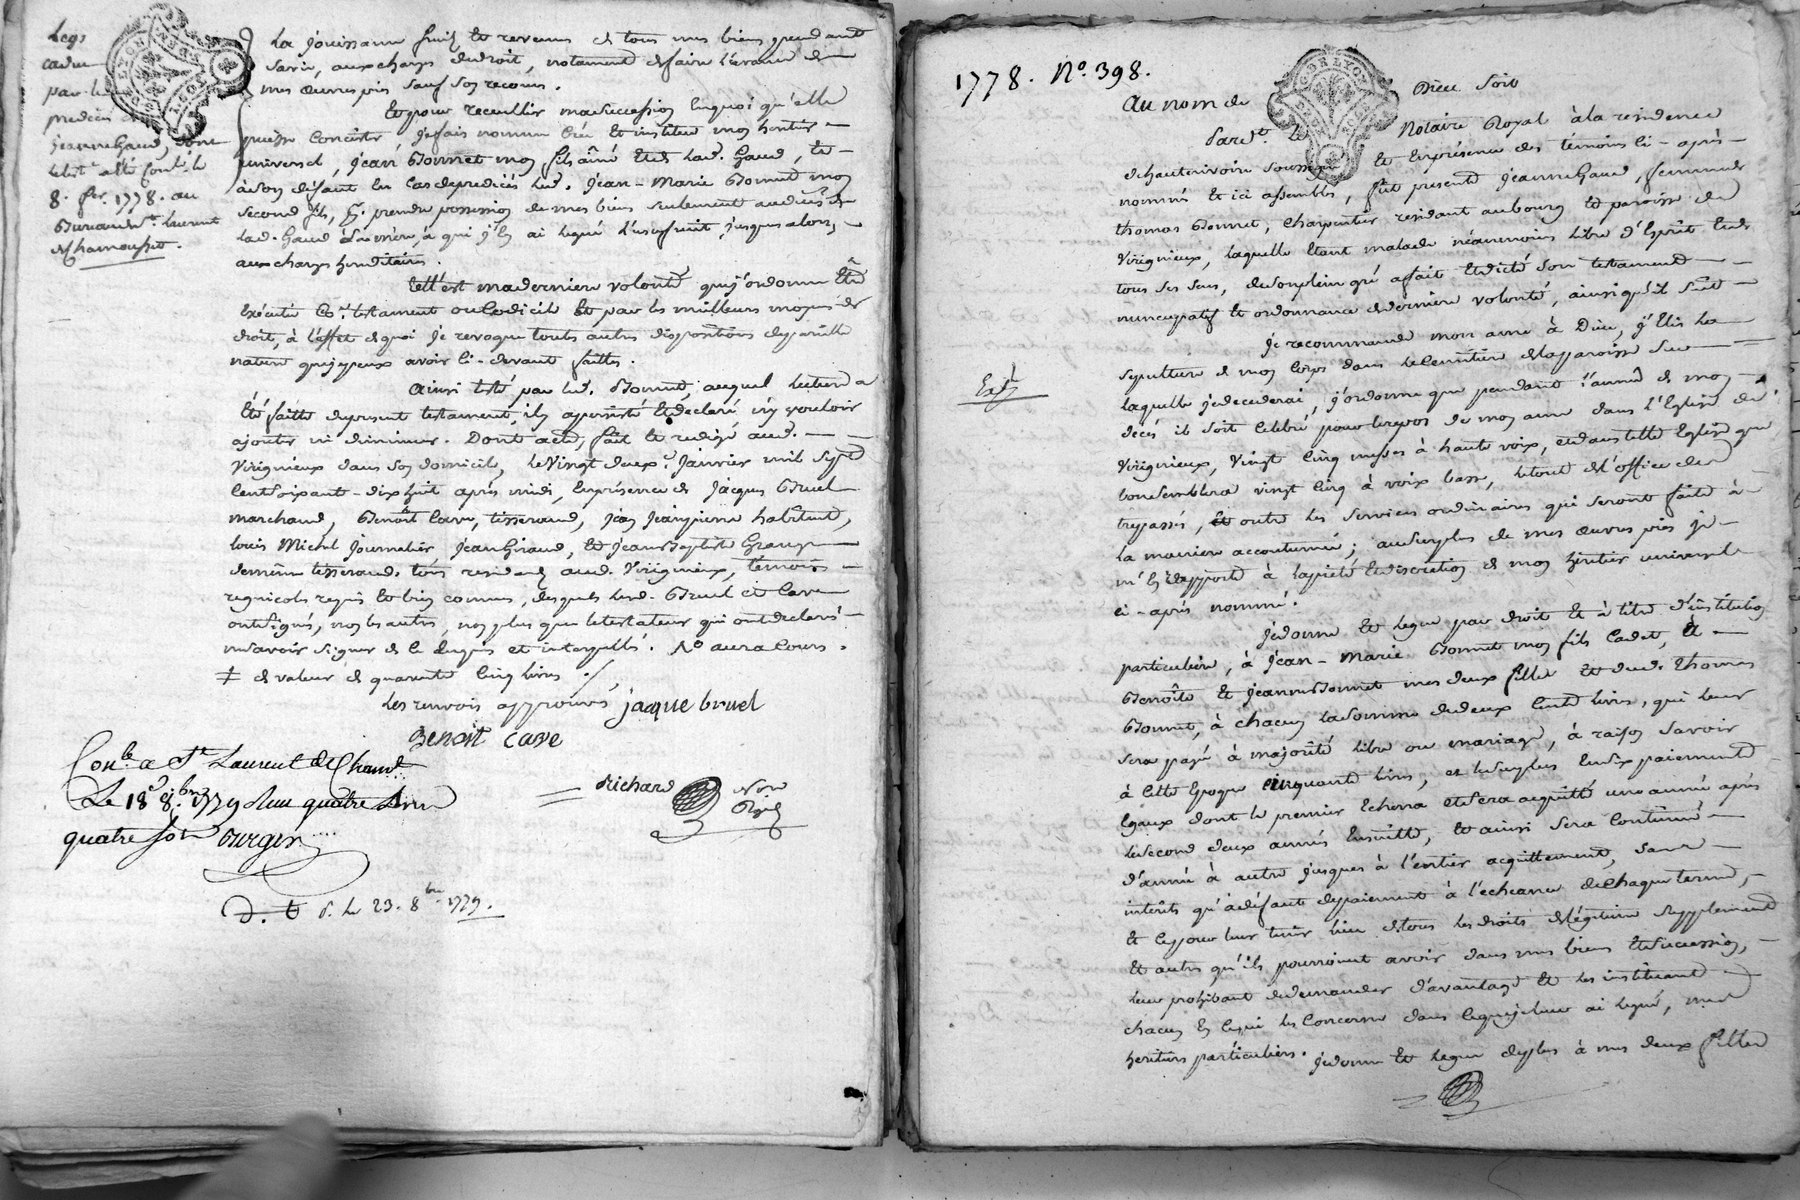 Legs
caduc
par le
predeces de
jeanne Gaud, dont
le test. a été cont.lé le
8. fer. 1778. au
Bureau St. Laurent
de Chamousset.
la jouissance fruits et revenus de tous mes biens pendant
sa vie, aux charges de droit, notament de faire l'avance de
mes œuvres pies sauf son recours.
Et pour recueillir ma succession en quoi qu'elle
puisse concister je fais nomme crée et institue mon heritier
universel, jean Bonnet mon fils aîné et de lad. Gaud, et
à son défaut en cas de predeces led. Jean-Marie Bonnet mon
second fils, pr. prendre possession de mes biens seulement au deces de
lad. Gaud sa mère, à qui j'en ai legué l'usufruit jusques alors,
aux charges hereditaires.
telle est ma derniere volonté que j'ordonne être
exécuté Ce. testament ou Codicile Et par les meilleurs moyens de
droit, à l'effet de quoi je revoque toutes autres dispositions de pareille
nature que je peux avoir ci-devant faittes.
Ainsi testé par led. Bonnet, auquel lecture a
Été faitte du present testament, il y a persisté Et declaré n'y vouloir
ajouter ni diminuer. Dont acte, fait et redigé aud.
Virigneux dans son domicile, le vingt deux. Janvier mil sept
Cent soixante-dix huit après midi, En présence de Jacques Bruel
marchand, Benoît Cave, tisserand, jean jeanpierre habitant,
louis Michel journalier, jean Giraud, et jean Baptiste Grange
dernier tisserand. tous residents aud. Virigneux, témoins
regnicoles requis et bien connus, desquels lesd. Bruel et Cave
ont signés, non les autres, non plus que le testateur qui ont declaré
ne savoir signer de ce enquis et interpellés. No aura Cours.
‡ de valeur de quarante cinq livres ./
Les renvois approuvés jacque bruel
Benoit Cave
Conle. a St. Laurent de Cham.
Le 18e 8.bre 1779 Reçu quatre livres
quatre sols Burger
Richard Nore
Royal
D. t d. le 23. 8bre. 1779.
1778. No. 398.
Au nom de Dieu soit
Pardt. le Notaire Royal à la residence
de hauterivoire soussigné Et En présence des témoins ci-après
nommés et ici assemblés, fut presente Jeanne Gaud, femme de
thomas Bonnet, Charpentier residant au bourg et paroisse de
Virigneux, laquelle étant malade néanmoins libre d'Esprit En de
tous ses sens, de son plein gré a fait Et dicté Son testament
nuncupatif et ordonnance de derniere volonté, ainsi qu'il suit
Je recommande mon ame à Dieu, j'Elis la
Ext.
sepulture de mon corps dans le Cemitiere de la paroisse sur
laquelle je decederai, j'ordonne que pendant l'année de mon
décès il soit Celebré pour le repos de mon ame dans l'Eglise de
Virigneux, Vingt Cinq messes à haute voix, et dans telle Eglise que
bon semblera vingt Cinq à voix basse, le tout de l'office des
trepassés, Et outre les services ordinaires qui seront faits à
la maniere accoutumée; au surplus de mes œuvres pies je
m'En rapporte à la pieté Et discretion de mon heritier universel
ci-après nommé.
je donne Et legue par droit Et à titre d'institution
particuliere, à Jean-Marie Bonnet mon fils Cadet, Et
Benoîte Et Jeanne Bonnet mes deux filles Et dud. Thomas
Bonnet, à chacun la somme de deux Cents livres, qui leur
sera payé à majorité libre ou mariage, à raison savoir
à Cette Epoque Cinquante livres, et le surplus En six paiements
Egaux dont le premier Echerra et sera acquitté une année après
le second deux années Ensuitte, Et ainsi sera Continué
d'année à autre jusques à l'entier acquittement, sans
interêts qu'à défaut de paiement à l'echeance de Chaque terme,
Et ce pour leur tenir lieu de tous les droits de légitime supplement
Et autres qu'ils pourroient avoir dans mes biens Et Succession,
leur prohibant de demander d'avantage Et les instituant
chacun En ce qui les Concerne dans ce que je leur ai legué, mes
heritiers particuliers. je donne Et legue de plus à mes deux filles